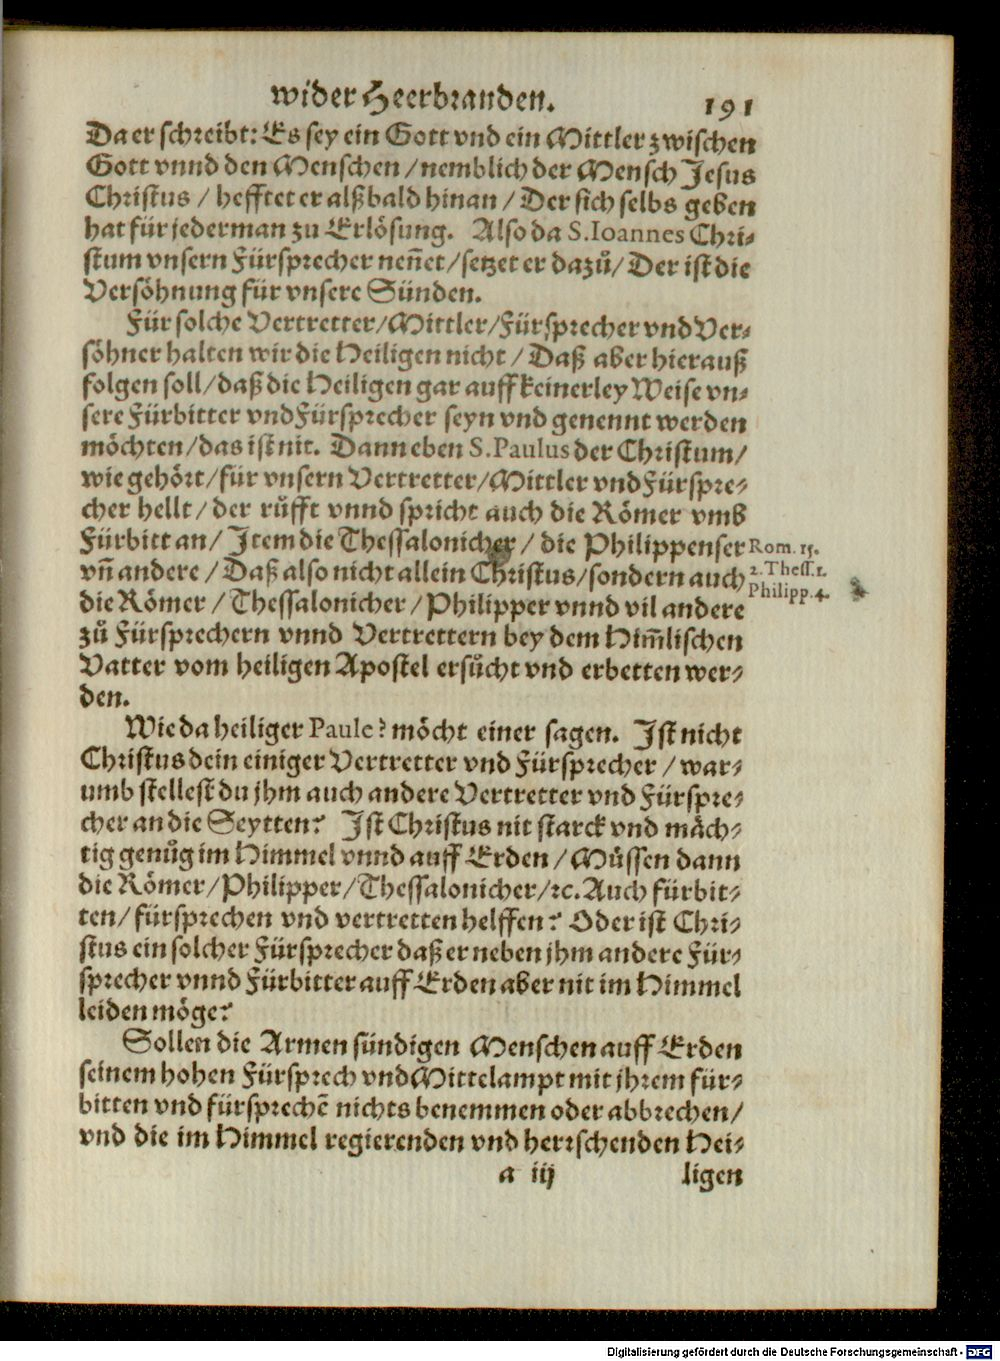 wider Heerbranden. 191
Da er schreibt: Es sey ein Gott vnd ein Mittler zwischen
Gott vnnd den Menschen / nemblich der Mensch Jesus
Christus / hefftet er alßbald hinan / Der sich selbs geben
hat für jederman zu Erlösung. Also da S. Ioannes Chri-
stum vnsern Fürsprecher nen̄et / setzet er dazů / Der ist die
Versöhnung für vnsere Sünden.
Für solche Vertretter / Mittler / Fürsprecher vnd Ver-
söhner halten wir die Heiligen nicht / Daß aber hierauß
folgen soll / daß die Heiligen gar auff keinerley Weise vn-
sere Fürbitter vnd Fürsprecher seyn vnd genennt werden
möchten / das ist nit. Dann eben S. Paulus der Christum /
wie gehört / für vnsern Vertretter / Mittler vnd Fürspre-
cher hellt / der růfft vnnd spricht auch die Römer vmb
Fürbitt an / Item die Thessalonicher / die Philippenser Rom. 15.
vn̄ andere / Daß also nicht allein Christus / sondern auch 2. Thess. 1.
die Römer / Thessalonicher / Philipper vnnd vil andere Philipp. 4.
zů Fürsprechern vnnd Vertrettern bey dem Him̄lischen
Vatter vom heiligen Apostel ersůcht vnd erbetten wer-
den.
Wie da heiliger Paule? möcht einer sagen. Ist nicht
Christus dein einiger Vertretter vnd Fürsprecher / war-
umb stellest du jhm auch andere Vertretter vnd Fürspre-
cher an die Seytten? Ist Christus nit starck vnd mäch-
tig genůg im Himmel vnnd auff Erden / Müssen dann
die Römer / Philipper / Thessalonicher / ꝛc. Auch fürbit-
ten / fürsprechen vnd vertretten helffen? Oder ist Chri-
stus ein solcher Fürsprecher daß er neben jhm andere Für-
sprecher vnnd Fürbitter auff Erden aber nit im Himmel
leiden möge?
Sollen die Armen sündigen Menschen auff Erden
seinem hohen Fürsprech vnd Mittelampt mit jhrem für-
bitten vnd fürsprechē nichts benemmen oder abbrechen /
vnd die im Himmel regierenden vnd herrschenden Hei-
a iij ligen
Digitalisierung gefördert durch die Deutsche Forschungsgemeinschaft - DFG